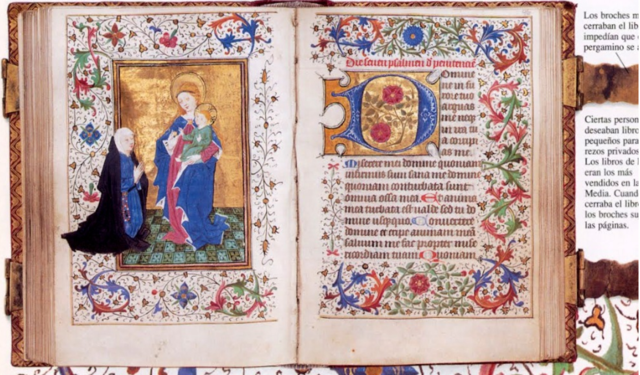 psalmi
Domine
ne in fu
rore tuo
arguas
me neq
in ira tu
a corripi
as me.
Miserere mei domine quoniam
infirmus sum sana me domine
quoniam conturbata sunt
omnia ossa mea. Et anima
mea turbata est valde sed tu do
mine usquequo. Convertere
domine et eripe animam meam
salvum me fac propter mise
ricordiam tuam Quoniam
Los broches m
cerraban el lib
impedían que
pergamino se a
Ciertas person
deseaban libre
pequeños para
rezos privados
Los libros de l
eran los más
vendidos en la
Media. Cuand
cerraba el libro
los broches su
las páginas.